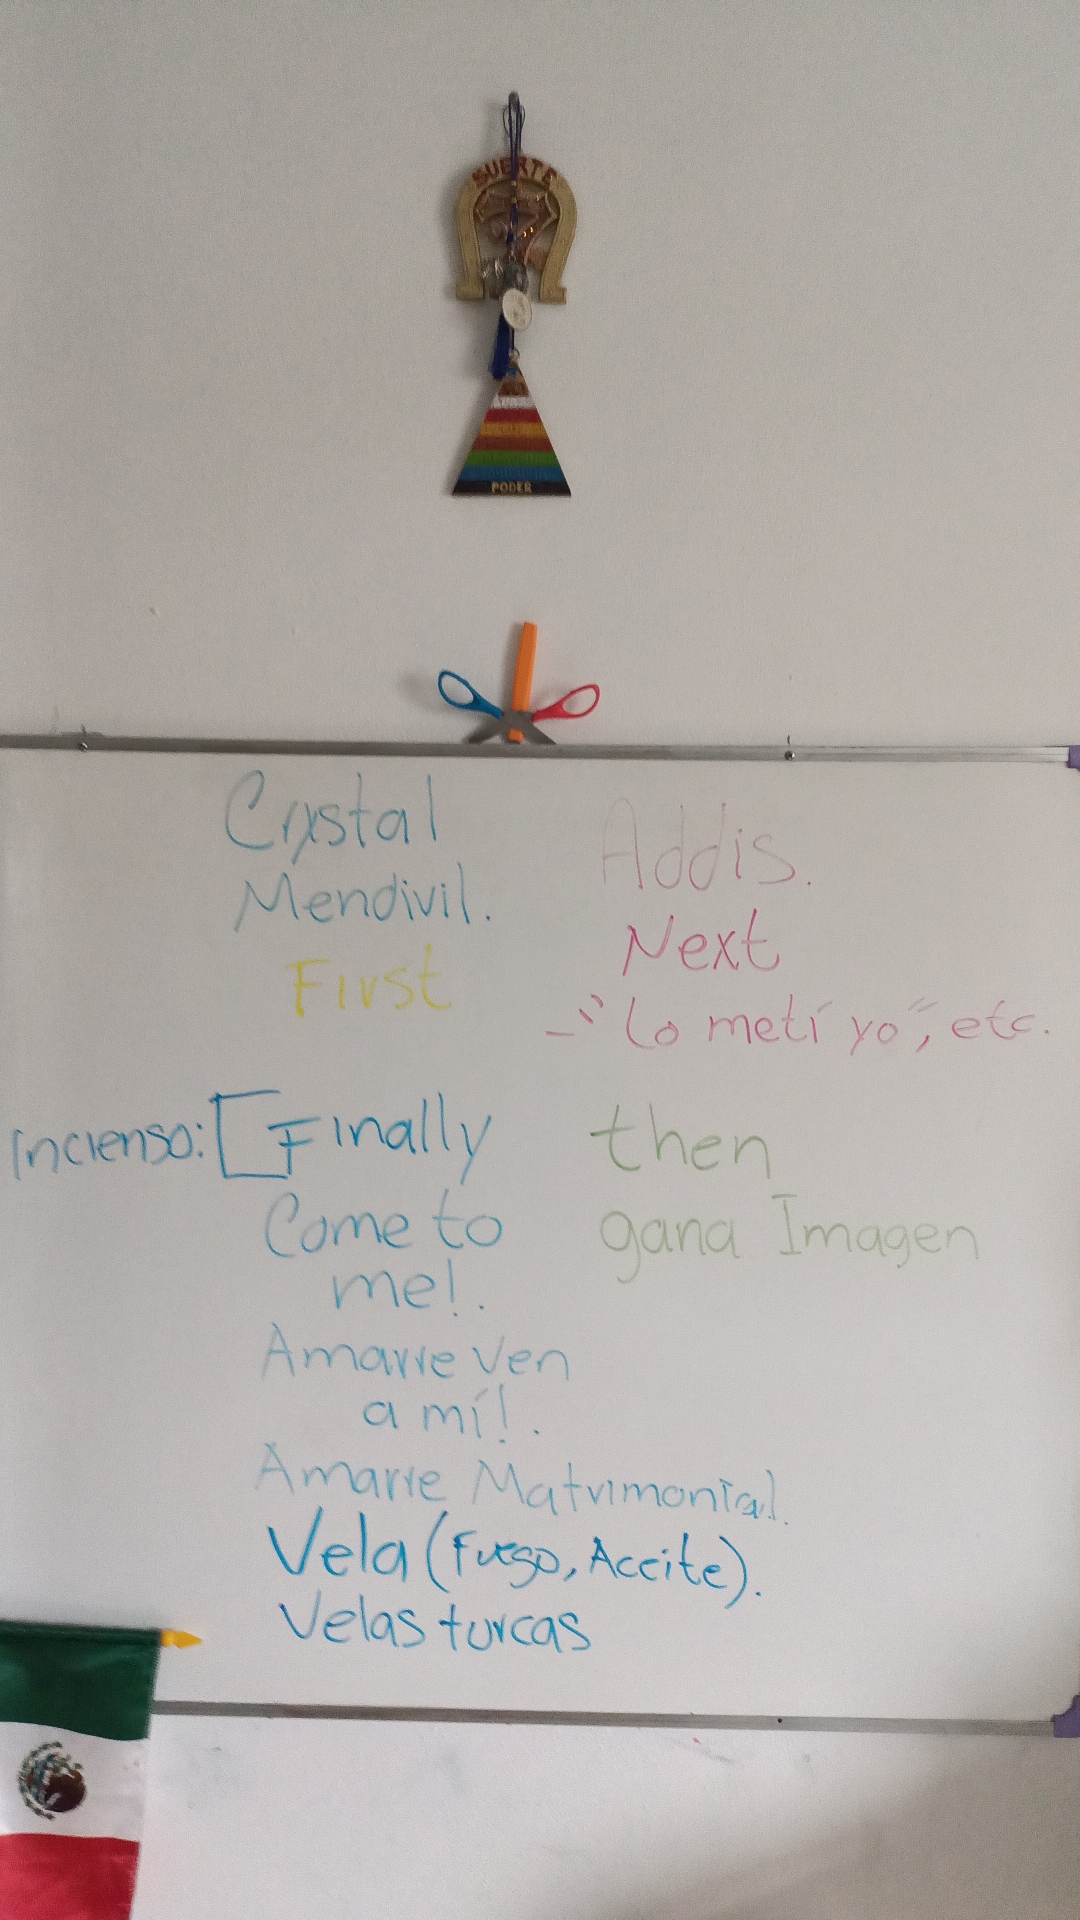 SUERTE
PODER
Crystal
Mendivil.
First
Addis.
Next
-"lo metí yo", etc.
Incienso: [Finally
Come to
me!.
Amarre ven
a mí!.
Amarre Matrimonial.
Vela (Fuego, Acceite).
Velas turcas
then
gana Imagen